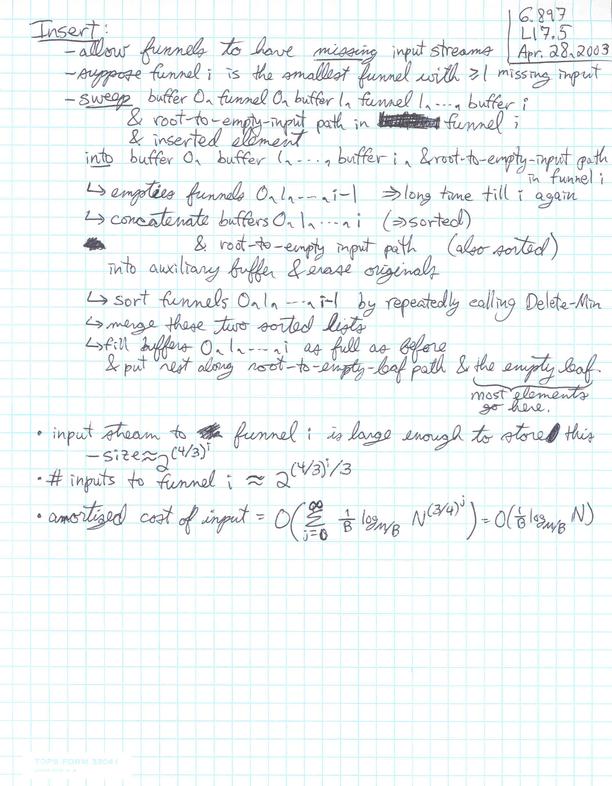 6.897
L17.5
Apr. 28, 2003
Insert:
- allow funnels to have missing input streams
- suppose funnel i is the smallest funnel with ≥1 missing input
- sweep buffer 0, funnel 0, buffer 1, funnel 1, ..., buffer i
& root-to-empty-input path in funnel i
& inserted element
into buffer 0, buffer 1, ..., buffer i, & root-to-empty-input path
in funnel i
↳ empties funnels 0, 1, ..., i-1 ⇒ long time till i again
↳ concatenate buffers 0, 1, ..., i (⇒ sorted)
& root-to-empty input path (also sorted)
into auxiliary buffer & erase originals
↳ sort funnels 0, 1, ..., i-1 by repeatedly calling Delete-Min
↳ merge these two sorted lists
↳ fill buffers 0, 1, ..., i as full as before
& put rest along root-to-empty-leaf path & the empty leaf.
most elements
go here.
• input stream to funnel i is large enough to store this
- size ≈ 2^(4/3)^i
• # inputs to funnel i ≈ 2^(4/3)^i/3
• amortized cost of input = O(∑_{j=0}^∞ 1/B log_{M/B} N^(3/4)^j) = O(1/B log_{M/B} N)